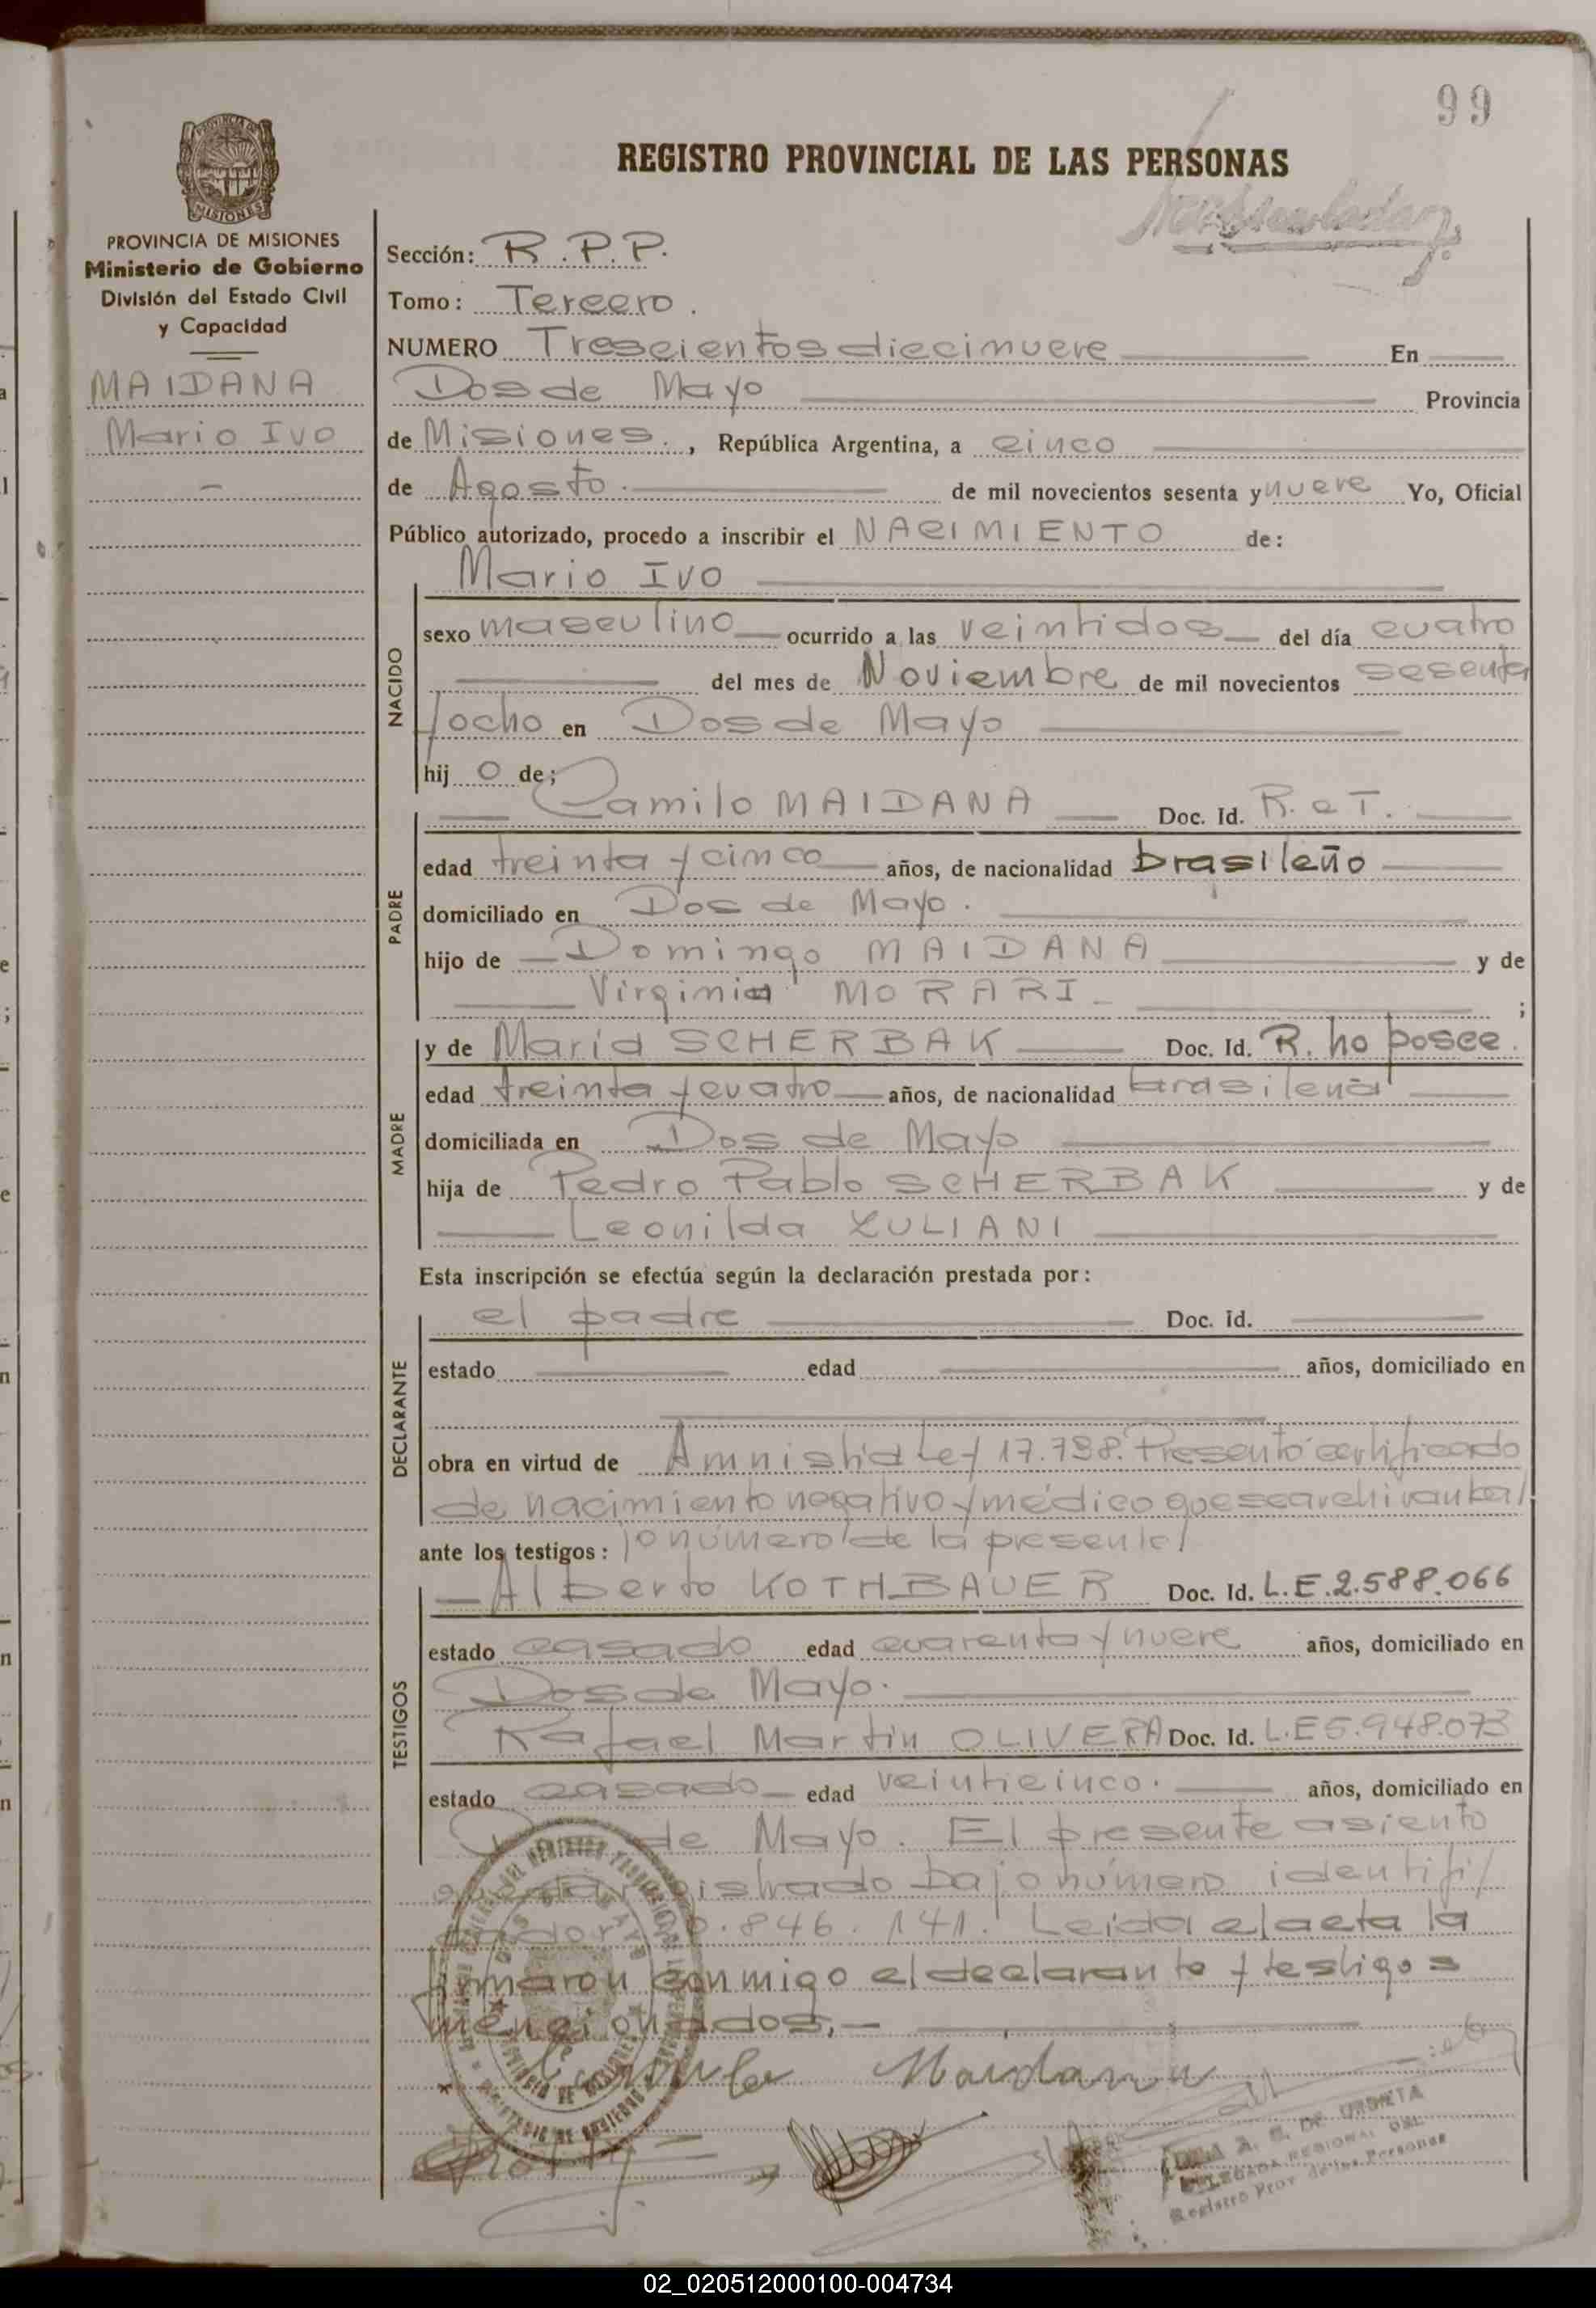 99
REGISTRO PROVINCIAL DE LAS PERSONAS
PROVINCIA DE MISIONES
Ministerio de Gobierno
División del Estado Civil
y Capacidad
MAIDANA
Mario Ivo
Sección: R.P.P.
Tomo: Tercero.
NUMERO Trescientos diecinueve En
Dos de Mayo Provincia
de Misiones., República Argentina, a cinco
de Agosto. de mil novecientos sesenta y nueve Yo, Oficial
Público autorizado, procedo a inscribir el NACIMIENTO de:
Mario Ivo
NACIDO
sexo masculino ocurrido a las veintidos del día cuatro
del mes de Noviembre de mil novecientos sesenta
y ocho en Dos de Mayo
hij o de;
Camilo MAIDANA Doc. Id. R. e T.
PADRE
edad treinta y cinco años, de nacionalidad brasileño
domiciliado en Dos de Mayo.
hijo de Domingo MAIDANA y de
Virginia MORARI ;
y de María SCHERBAK Doc. Id. R. no posee.
MADRE
edad treinta y cuatro años, de nacionalidad brasileña
domiciliada en Dos de Mayo
hija de Pedro Pablo SCHERBAK y de
Leonilda ZULIANI
Esta inscripción se efectúa según la declaración prestada por:
el padre Doc. id.
DECLARANTE
estado edad años, domiciliado en
obra en virtud de Amnistía Ley 17.798. Presentó certificado
de nacimiento negativo y médico que se archivan ba/
jo número de la presente/
ante los testigos:
Alberto KOTHBAUER Doc. Id. L.E.2.588.066
TESTIGOS
estado casado edad cuarenta y nueve años, domiciliado en
Dos de Mayo.
Rafael Martin OLIVERA Doc. Id. L.E 5.948.073
estado casado edad veinticinco. años, domiciliado en
de Mayo. El presente asiento
queda registrado bajo número identifi/
cador .846.141. Leida el acta la
firmaron conmigo el declarante y testigos
mencionados.-
Camilo Maidana
A. S. DE URDIETA
DELEGADA REGIONAL
Registro Prov. de las Personas
02_020512000100-004734